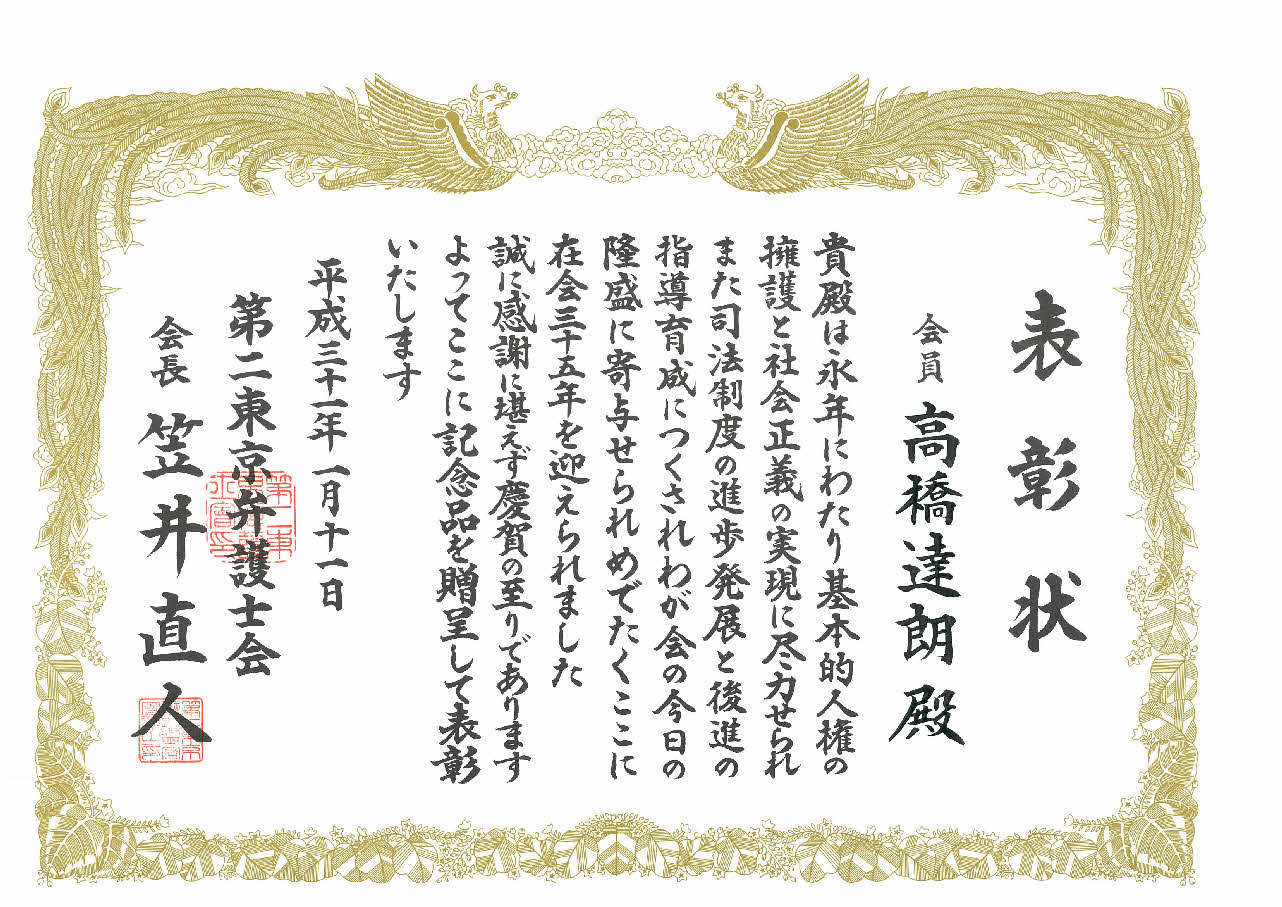 表彰状
会員 高橋達朗殿
貴殿は永年にわたり基本的人権の
擁護と社会正義の実現に尽力せられ
また司法制度の進歩発展と後進の
指導育成につくされわが会の今日の
隆盛に寄与せられめでたくここに
在会三十五年を迎えられました
誠に感謝に堪えず慶賀の至りであります
よってここに記念品を贈呈して表彰
いたします
平成三十一年一月十一日
第二東京弁護士会
会長 笠井直人